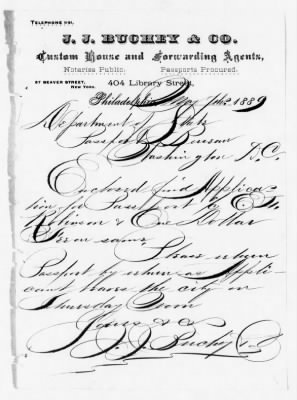 TELEPHONE 991.
J. J. BUCHEY & CO.
Custom House and Forwarding Agents,
Notaries Public. Passports Procured.
57 BEAVER STREET,
NEW YORK.
404 Library Street,
Philadelphia 1889
Department of State
Passport Bureau
Washington D.C.
Enclosed find Applica-
tion for Passport of
Robinson & One Dollar
Fee on same
Please return
Passport by return as Appli-
cant leaves the city on
Thursday Noon
Yours &c
J. J. Buchey & Co